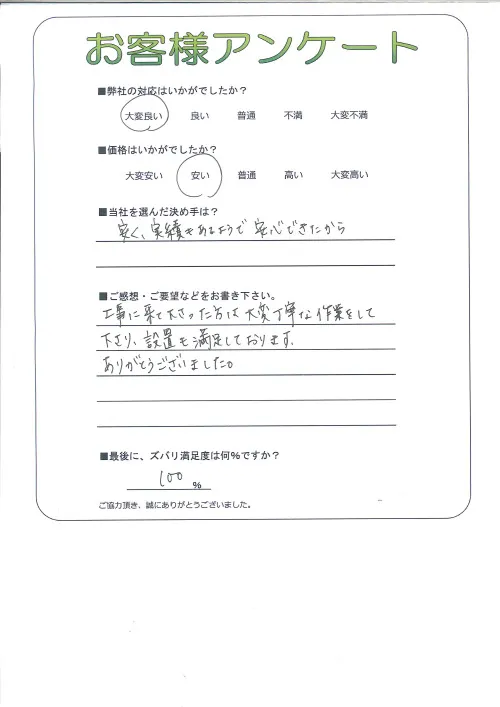 お客様アンケート
■弊社の対応はいかがでしたか？
大変良い 良い 普通 不満 大変不満
■価格はいかがでしたか？
大変安い 安い 普通 高い 大変高い
■当社を選んだ決め手は？
安く、実績もあるようで安心できたから
■ご感想・ご要望などをお書き下さい。
工事に来て下さった方は大変丁寧な作業をして
下さり、設置も満足しております。
ありがとうございました。
■最後に、ズバリ満足度は何％ですか？
100 ％
ご協力頂き、誠にありがとうございました。